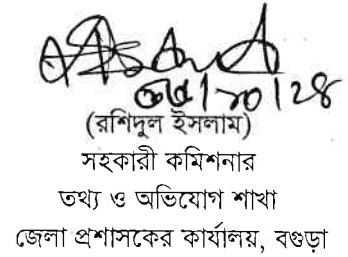 (রশিদুল ইসলাম)
সহকারী কমিশনার
তথ্য ও অভিযোগ শাখা
জেলা প্রশাসকের কার্যালয়, বগুড়া